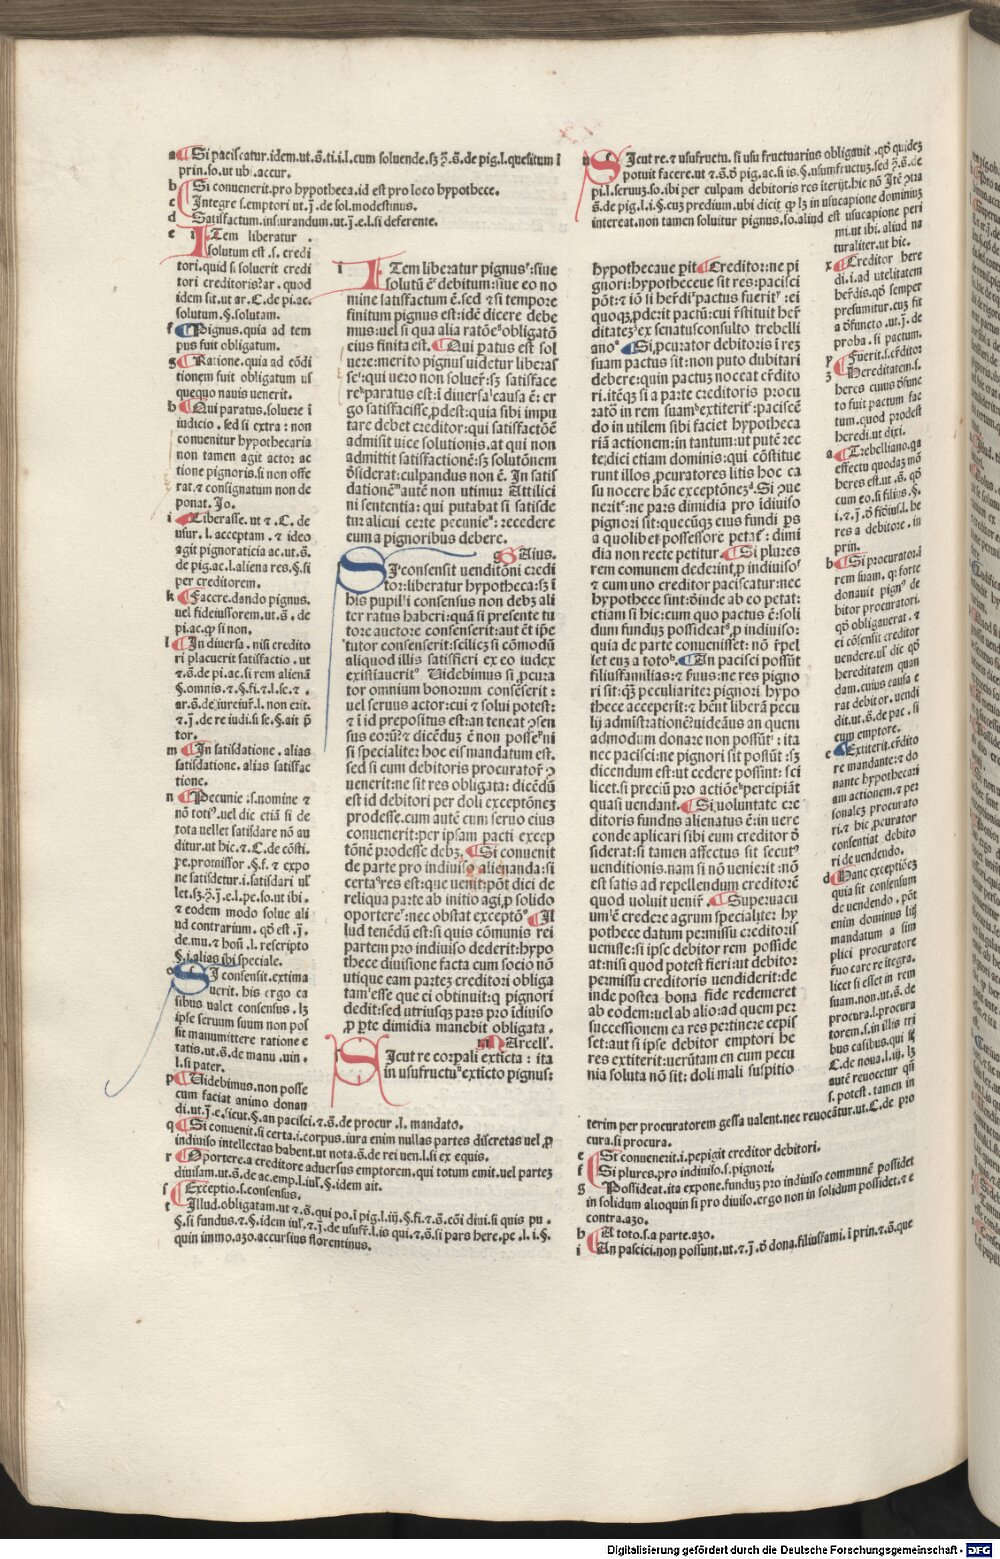 a Si paciscatur.idem.ut.s̄.ti.i.l.cum soluende.sꝫ ꝯ̄.s̄.de pig.l.quesitum ī
prin.so.ut ubi.accur.
b Si conuenerit.pro hypotheca.id est pro loco hypothece.
c Integre s.emptori ut.j̄.de sol.modestinus.
d Satisfactum.insiurandum.ut.j̄.e.l.si deferente.
e ITem liberatur .
solutum est .s. credi
tori.quid si soluerit credi
tori creditoris?ar. quod
idem sit.ut ar.C.de pi.ac.
solutum.§.solutam.
f Pignus.quia ad tem
pus fuit obligatum.
g Ratione.quia ad cōdi
tionem fuit obligatum us
quequo nauis uenerit.
h Qui paratus.soluere ī
iudicio . sed si extra : non
conuenitur hypothecaria
non tamen agit actor ac
tione pignoris.si non offe
rat.⁊ consignatum non de
ponat. Jo.
i Liberasse.ut ⁊ .C. de
usur. l. acceptam . ⁊ ideo
agit pignoraticia ac.ut.s̄.
de pig.ac.l.aliena res.§.si
per creditorem.
k Facere.dando pignus.
uel fideiussorem.ut.s̄. de
pi.ac.ꝙ si non.
l In diuersa . nisi credito
ri placuerit satisfactio . ut
⁊.s̄.de pi.ac.si rem alienā
§.omnis.⁊.§.fi.⁊.l.se.⁊ .
ar.s̄.de iureiur̄.l.non erit.
⁊.j̄.de re iudi.si se.§.ait p̄
tor.
m In satisdatione . alias
satisdatione. alias satisfac
tione.
n Pecunie :s.nomine ⁊
nō totiꝰ.uel dic etiā si de
tota uellet satisdare nō au
ditur.ut hic.⁊.C.de cōsti.
pe.promissor .§.f.⁊ expo
ne satisdetur.i.satisdari ul̄
let.sꝫ.ꝯ̄.j̄.e.l.pe.so.ut ibi .
⁊ eodem modo solue ali
ud contrarium. qd̄ est .j̄.
de.mu.⁊ hoñ .l. rescripto
§.l.alias ibi speciale.
o SI consensit.extima
uerit. his ergo ca
sibus ualet consensus . lꝫ
ipse seruum suum non pos
sit manumittere ratione e
tatis.ut.s̄.de manu .uin .
l.si pater.
p Uidebimus.non posse
cum faciat animo donan
di.ut.j̄.e.sicut.§.an pacisci.⁊.s̄.de procur .l. mandato.
q Si conuenit.si certa.i.corpus.iura enim nullas partes discretas uel ꝓ
indiuiso intellectas habent.ut nota.s̄.de rei uen.l.si ex equis.
r Oportere.a creditore aduersus emptorem.qui totum emit.uel partez
diuisam.ut.s̄.de ac.emp.l.iul̄.§.idem ait.
s Exceptio.s.consensus.
t Illud.obligatam.ut ⁊.s̄.qui po.ī pig.l.iij.§.fi.⁊.s̄.cōi diui.si quis pu .
§.si fundus.⁊.§.idem iul̄.⁊.j̄.de usufr̄.l.is qui.⁊.s̄.si pars here.pe .l .i.§.
quin immo.azo.accursius florentinus.
ITem liberatur pignusᶠ:siue
solutū ēᵉ debitum:siue eo no
mine satisfactum ē.sed ⁊ si tempore
finitum pignus est:idē dicere debe
mus:uel si qua alia ratōeᵍobligatō
eius finita est. Qui patus est sol
uere:merito pignus uidetur liberas
seⁱ:qui uero non soluer̄:sꝫ satisface
reᵏparatus est:ī diuersaˡcausa ē: er
go satisfacisse ꝓdest:quia sibi impu
tare debet creditor:qui satisfactōē
admisit uice solutionis.at qui non
admittit satisfactionē:sꝫ solutōnem
ꝯsiderat:culpandus non ē. In satis
dationēᵐautē non utimur Attilici
ni sententia: qui putabat si satisde
tur alicui certe pecunieⁿ: recedere
eum a pignoribus debere.
Gaius.
SI consensit uenditōni credi
tor:liberatur hypotheca:sꝫ ī
his pupilli consensus non debꝫ ali
ter ratus haberi:quā si presente tu
tore auctore consenserit:aut ēt ip̄e
tutor consenserit:scilicꝫ si cōmodū
aliquod illis satisfieri ex eo iudex
existiaueritᵒ Uidebimus si ꝓcura
tor omnium bonorum conseserit :
uel seruus actor:cui ⁊ solui potest:
⁊ ī id prepositus est:an teneat ꝯsen
sus eorū?⁊ dicēduꝫ ē non posseᵖni
si specialiter hoc eis mandatum est.
sed si cum debitoris procuratorꝭ ꝯ
uenerit:ne sit res obligata: dicēdū
est id debitori per doli exceptōneꝫ
prodesse.cum autē cum seruo eius
conuenerit:per ipsam pacti excep
tōnē prodesse debꝫ. Si conuenit
de parte pro indiuiso alienanda:si
certaꝗres est:que uenit:pōt dici de
reliqua parte ab initio agi ꝓ solido
oportereʳ:nec obstat exceptōˢ Il
lud tenēdū est:si quis cōmunis rei
partem pro indiuiso dederit:hypo
thece diuisione facta cum socio nō
utique eam partez creditori obliga
tamᵗesse que ei obtinuit:q pignori
dedit:sed utriusqꝫ pars pro īdiuiso
ꝓ ꝑte dimidia manebit obligata .
Marcell̄.
SIcut re corꝑali extīcta : ita
in usufructuᵘextīcto pignus:
u SIcut re.⁊ usufructu. si usu fructuarius obligauit .qd̄ quidez
potuit facere.ut ⁊.s̄.d̄ pig.ac.si is.§.usumfructuꝫ.sed ꝯ̄.s̄.de
pi.l.seruuꝫ.so.ibi per culpam debitoris res iteriit.hic nō Itē ꝯtra
s̄.de pig.l.i.§.cuꝫ predium.ubi dicit ꝙ lꝫ in usucapione dominiuꝫ
intereat.non tamen soluitur pignus.so.aliud est usucapione peri
mi.ut ibi. aliud na
turaliter.ut hic.
hypothecaue pit Creditor:ne pi
gnori:hypotheceue sit res:pacisci
pōt:⁊ iō si her̄diˣpactus fueritʸ :ei
quoqꝫ ꝓderit pactū:cui r̄stituit her̄
ditateꝫᶻex senatusconsulto trebelli
anoᵃ Si ꝓcurator debitoris ī reꝫ
suam pactus sit:non puto dubitari
debere:quin pactuꝫ noceat cr̄dito
ri.iteꝫqꝫ si a parte creditoris procu
ratō in rem suamᵇextiteritᶜ:paciscē
do in utilem sibi faciet hypotheca
riā actionem:in tantum:ut putē rec
te:dici etiam dominis:qui cōstitue
runt illos ꝓcuratores litis hoc ca
su nocere hāc exceptōneꝫᵈ.Si ꝯue
neritᵉ:ne pars dimidia pro īdiuiso
pignori sit:quecūqꝫ eius fundi ꝑs
a quolibet possessore petat̄ : dimi
dia non recte petitur. Si plures
rem comunem dederint ꝓ indiuisoᶠ
⁊ cum uno creditor paciscatur:nec
hypothece sint:d̄inde ab eo petat:
etiam si hic:cum quo pactus ē:soli
dum funduꝫ possideatᵍ ꝓ indiuiso:
quia de parte conuenisset: nō r̄pel
let euꝫ a totoʰ. An pacisci possūt
filiusfamilias:⁊ s̄uus:ne res pigno
ri sit:qꝫ peculiariter pignori hypo
thece acceperit:⁊ hn̄t liberā pecu
lij admīstrationē?uideāus an quem
admodum donare non possūtⁱ : ita
nec pacisci:ne pignori sit possūt :sꝫ
dicendum est:ut cedere possint: sci
licet.si preciū pro actiōeᵏpercipiāt
quasi uendant. Si uoluntate cre
ditoris fundus alienatus ē:in uere
conde aplicari sibi eum creditor d̄
siderat:si tamen affectus sit secutꝰ
uenditionis.nam si nō uenie:it :nō
est satis ad repellendum creditorē
quod uoluit uenir̄. Superuacu
umˡē credere agrum specialiter hy
pothece datum permissu creditoris
uenisse:si ipse debitor rem posside
at:nisi quod potest fieri:ut debitor
permissu creditoris uendiderit:de
inde postea bona fide redemeret
ab eodem:uel ab alio:ad quem per
successionem ea res pertinere cepis
set:aut si ipse debitor emptori he
res extiterit:uerūtam en cum pecu
nia soluta nō sit: doli mali suspitio
x Creditor here
di.i.ad utelitatem
her̄dis.qd̄ semper
presumitur.cuꝫ sit
a d̄functo.ut.j̄.de
proba.si pactum.
y Fuerit.s.cr̄ditor
z Hereditatem.s.
heres cuius d̄func
to fuit pactum fac
tum.quod prodest
heredi.ut dixi.
a Trebelliano.qa
effectu quodaꝫ mō
heres est.ut .s̄. qd̄
cum eo.si filius.§.
i.⁊.j̄.d̄ fidius.l. he
res a debitore. in
prin.
b Si procuratorā
rem suam. q: forte
donauit pignꝰ de
bitor procuratori.
qd̄ obligauerat. ⁊
ei cōsensit creditor
uendere.ul̄ dic qd̄
hereditatem quan
dam.cuius causa e
rat debitor. uendi
dit.ut.s̄.de pac . si
cum emptore.
c Extiterit.cr̄dito
re mandante:⁊ do
nante hypothecari
am actionem.⁊ per
sonaleꝫ procurato
ri.⁊ hic ꝓcurator
consentiat debito
ri de uendendo.
d Hanc exceptōeꝫ
quia sit consensum
de uendendo . pōt
enim dominus līī
mandatum a sim
plici procuratore
r̄uo care re ītegra.
licet si esset in rem
suam.non.ut.s̄.de
procura.l.procura
torem.s.in illis tri
bus casibus.qui īī
C.de noua.l.iij. lꝫ
autē reuocetur qn̄
s. potest. tamen in
terim per procuratorem gesta ualent.nec reuocātur.ut.C. de pro
cura.si procura.
e Si conuenerit.i.pepigit creditor debitori.
f Si plures.pro indiuiso.s.pignori.
g Possideat.ita expone.funduꝫ pro indiuiso communē possidet
in solidum alioquin si pro diuiso.ergo non in solidum possidet.⁊ e
contra.azo.
h A toto.s.a parte.azo.
i An pascici.non possunt.ut.⁊.j̄ .d̄ dona.filiusfami. ī prin.⁊.s̄.que
Digitalisierung gefördert durch die Deutsche Forschungsgemeinschaft - DFG